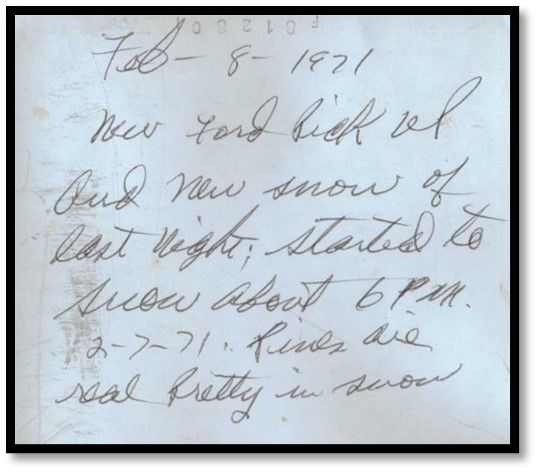 Feb - 8 - 1971
New Ford Pick up
and new snow of
last night; started to
snow about 6 P.M.
2-7-71. Pines are
real pretty in snow